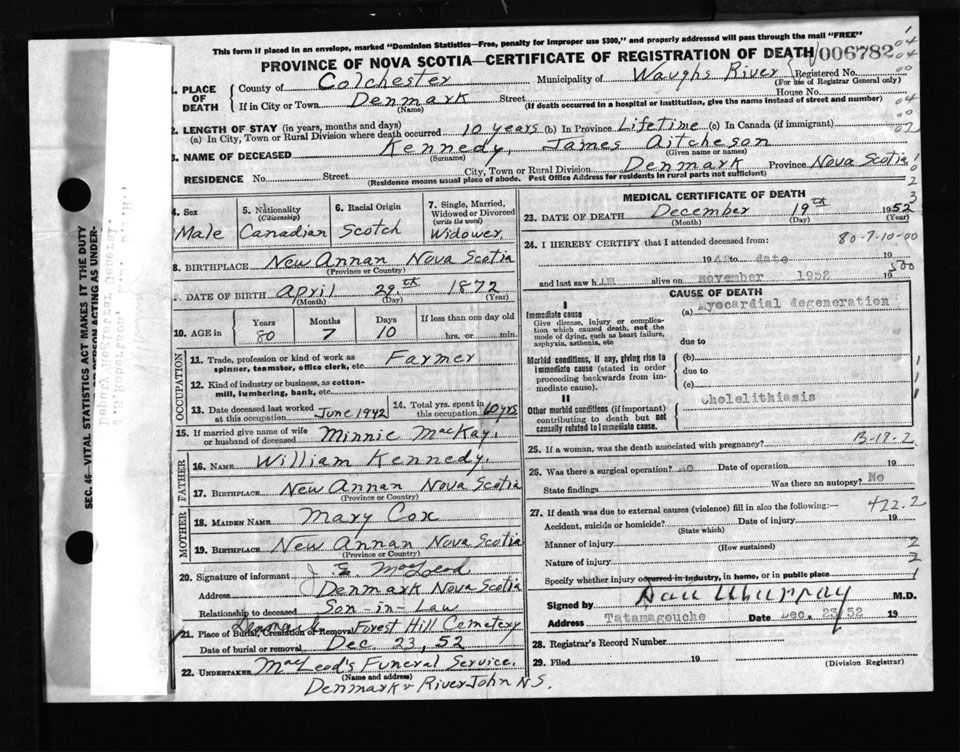 This form if placed in an envelope, marked "Dominion Statistics—Free, penalty for improper use $300," and properly addressed will pass through the mail "FREE"
PROVINCE OF NOVA SCOTIA—CERTIFICATE OF REGISTRATION OF DEATH
006782
1. PLACE OF DEATH
County of Colchester Municipality of Waughs River Registered No.
(For use of Registrar General only)
If in City or Town Denmark Street House No.
(Name) (If death occurred in a hospital or institution, give the name instead of street and number)
2. LENGTH OF STAY (in years, months and days)
(a) In City, Town or Rural Division where death occurred 10 years (b) In Province Lifetime (c) In Canada (if immigrant)
3. NAME OF DECEASED Kennedy, James Aitcheson
(Surname) (Given name or names)
RESIDENCE No. Street City, Town or Rural Division Denmark Province Nova Scotia
(Residence means usual place of abode. Post Office Address for residents in rural parts not sufficient)
4. Sex Male
5. Nationality (Citizenship) Canadian
6. Racial Origin Scotch
7. Single, Married, Widowed or Divorced (write the word) Widower
8. BIRTHPLACE New Annan Nova Scotia
(Province or Country)
DATE OF BIRTH April 29th 1872
(Month) (Day) (Year)
10. AGE in Years 80 Months 7 Days 10 If less than one day old hrs. or min.
OCCUPATION
11. Trade, profession or kind of work as spinner, teamster, office clerk, etc. Farmer
12. Kind of industry or business, as cotton-mill, lumbering, bank, etc.
13. Date deceased last worked at this occupation June 1942 14. Total yrs. spent in this occupation 60 yrs.
15. If married give name of wife or husband of deceased Minnie MacKay.
FATHER
16. NAME William Kennedy.
17. BIRTHPLACE New Annan Nova Scotia
(Province or Country)
MOTHER
18. MAIDEN NAME Mary Cox
19. BIRTHPLACE New Annan Nova Scotia
(Province or Country)
20. Signature of informant J. E. MacLeod
Address Denmark Nova Scotia
Relationship to deceased Son-in-Law
21. Place of Burial, Cremation or Removal Denmark Forest Hill Cemetery
Date of burial or removal Dec. 23, 52
22. UNDERTAKER MacLeod's Funeral Service.
(Name and address)
Denmark & River John N.S.
MEDICAL CERTIFICATE OF DEATH
23. DATE OF DEATH December 19th 1952
(Month) (Day) (Year)
24. I HEREBY CERTIFY that I attended deceased from: 80-7-10-00
19 to date 19
and last saw him alive on november 1952 19
500
CAUSE OF DEATH
I
Immediate cause
Give disease, injury or complication which caused death, not the mode of dying, such as heart failure, asphyxia, asthenia, etc
(a) Myocardial degeneration
due to
Morbid conditions, if any, giving rise to immediate cause (stated in order proceeding backwards from immediate cause).
(b)
due to
(c)
II
Other morbid conditions (if important) contributing to death but not causally related to immediate cause.
Cholelithiasis
25. If a woman, was the death associated with pregnancy? B-19-2
26. Was there a surgical operation? no Date of operation 19
State findings Was there an autopsy? No
27. If death was due to external causes (violence) fill in also the following:— 422.2
Accident, suicide or homicide? Date of injury 19
(State which)
Manner of injury
(How sustained)
Nature of injury
Specify whether injury occurred in industry, in home, or in public place
Signed by Dan Murray M.D.
Address Tatamagouche Date Dec. 23/52 19
28. Registrar's Record Number
29. Filed 19
(Division Registrar)
SEC. 46—VITAL STATISTICS ACT MAKES IT THE DUTY
Deputy Registrar General.